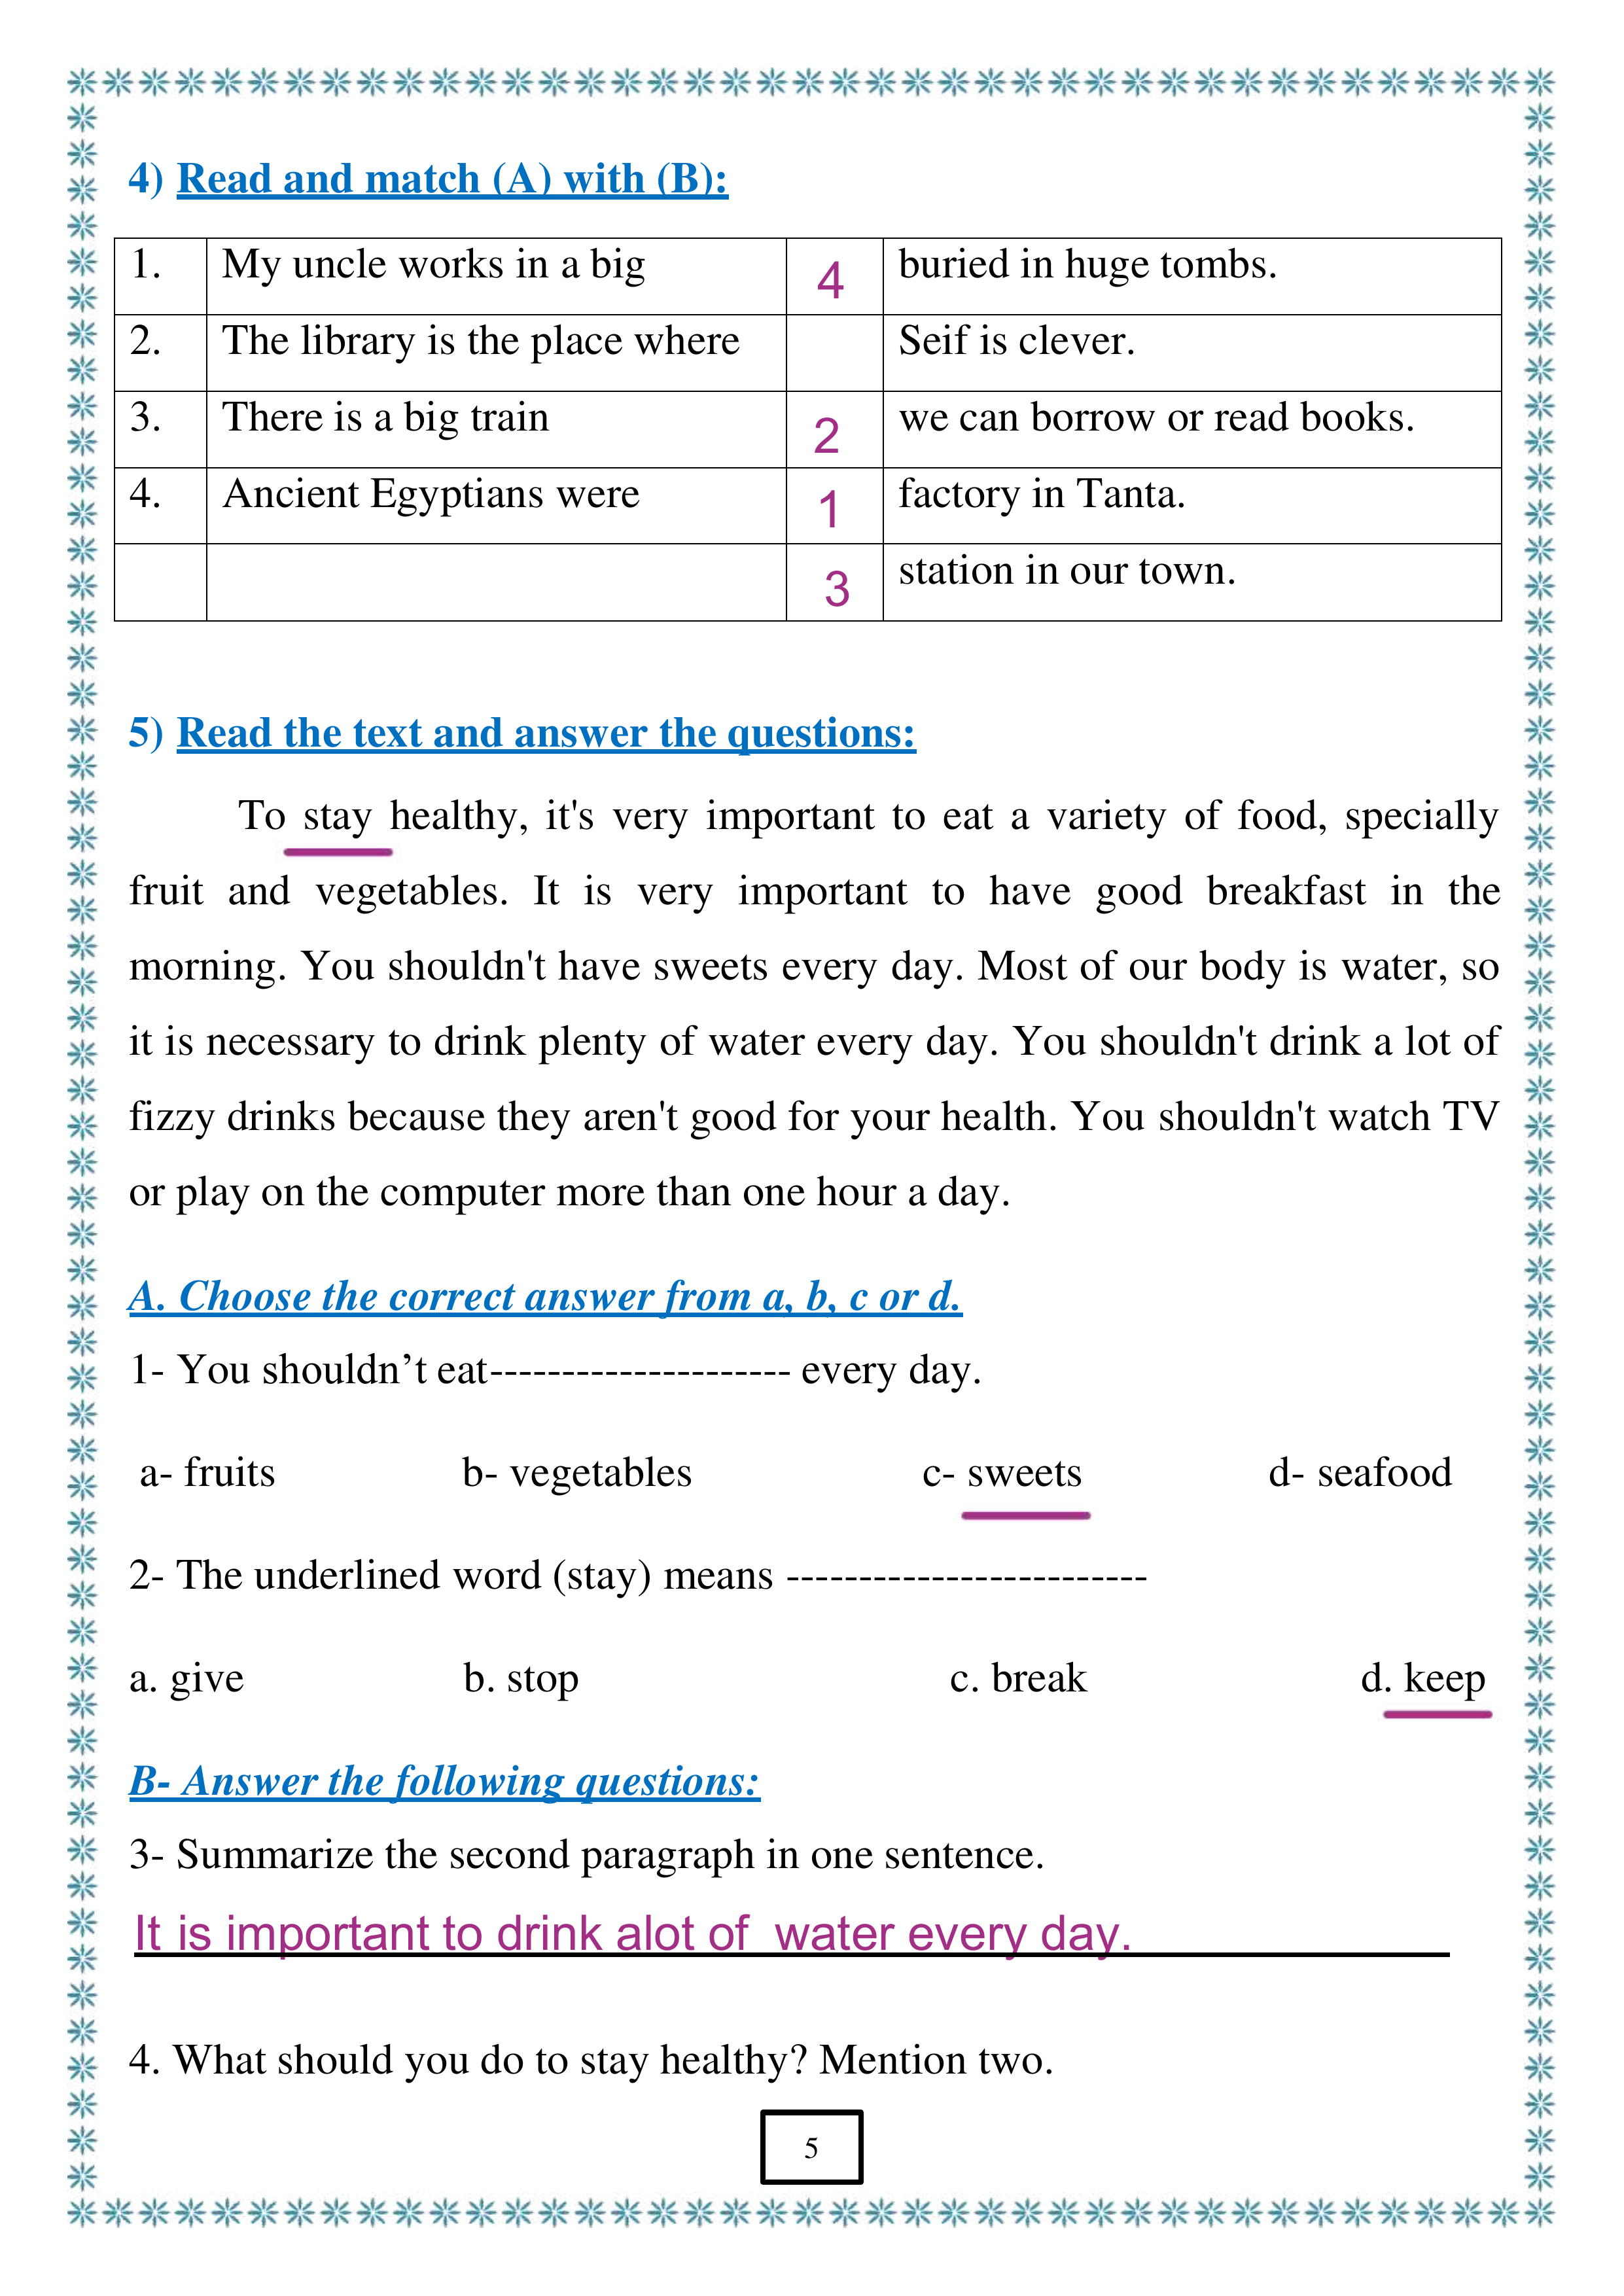 4) Read and match (A) with (B):
1. My uncle works in a big 4 buried in huge tombs.
2. The library is the place where Seif is clever.
3. There is a big train 2 we can borrow or read books.
4. Ancient Egyptians were 1 factory in Tanta.
3 station in our town.
5) Read the text and answer the questions:
To stay healthy, it's very important to eat a variety of food, specially
fruit and vegetables. It is very important to have good breakfast in the
morning. You shouldn't have sweets every day. Most of our body is water, so
it is necessary to drink plenty of water every day. You shouldn't drink a lot of
fizzy drinks because they aren't good for your health. You shouldn't watch TV
or play on the computer more than one hour a day.
A. Choose the correct answer from a, b, c or d.
1- You shouldn’t eat--------------------- every day.
a- fruits b- vegetables c- sweets d- seafood
2- The underlined word (stay) means -------------------------
a. give b. stop c. break d. keep
B- Answer the following questions:
3- Summarize the second paragraph in one sentence.
It is important to drink alot of water every day.
4. What should you do to stay healthy? Mention two.
5